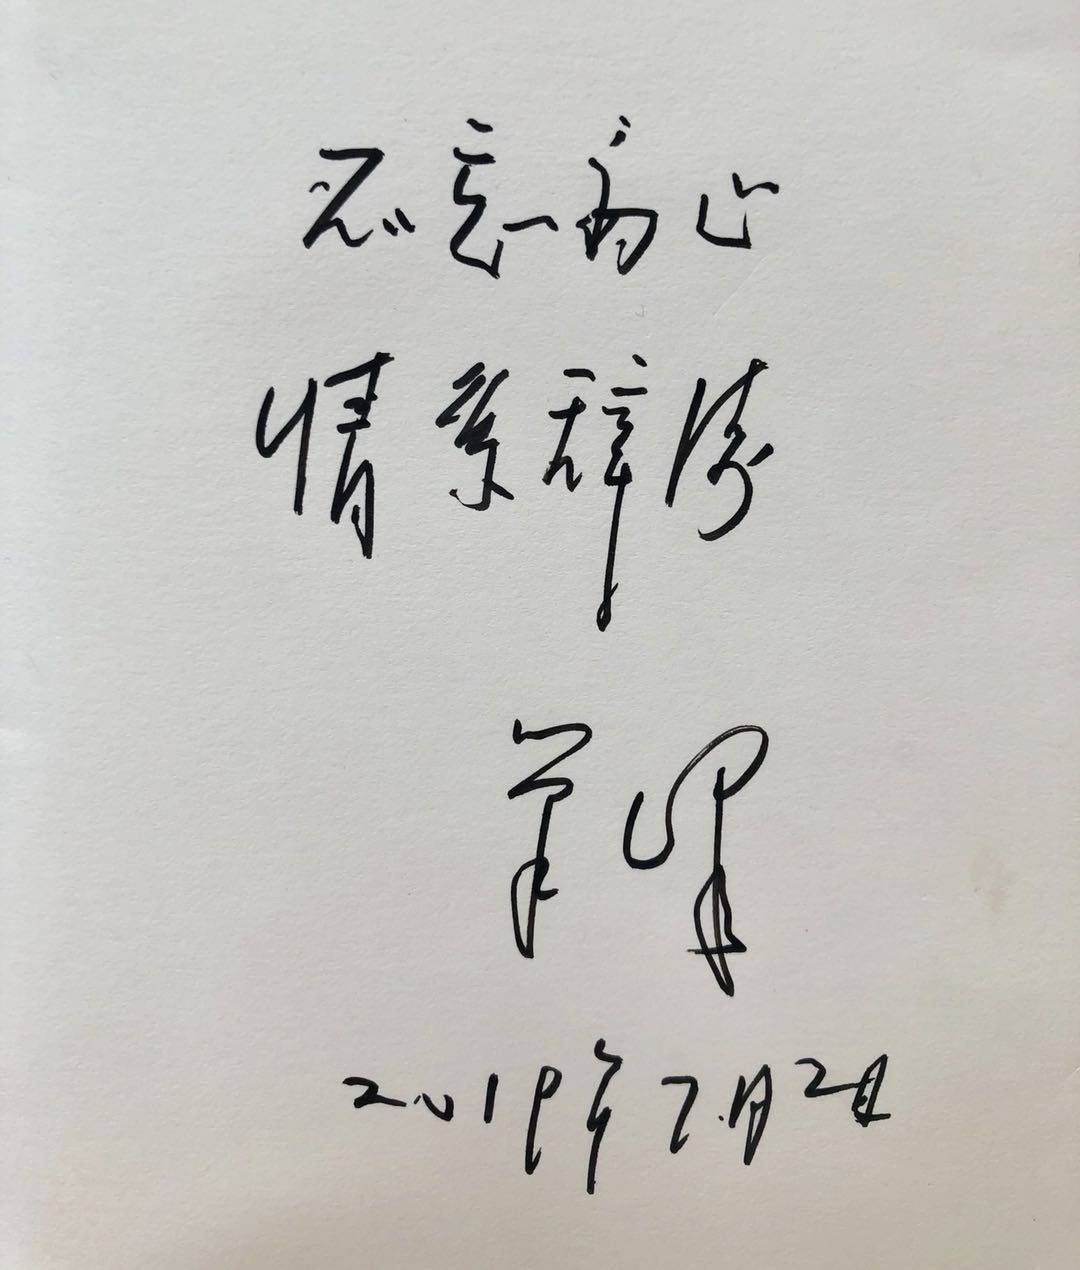 不忘初心
情系辞海
2019年7月2日